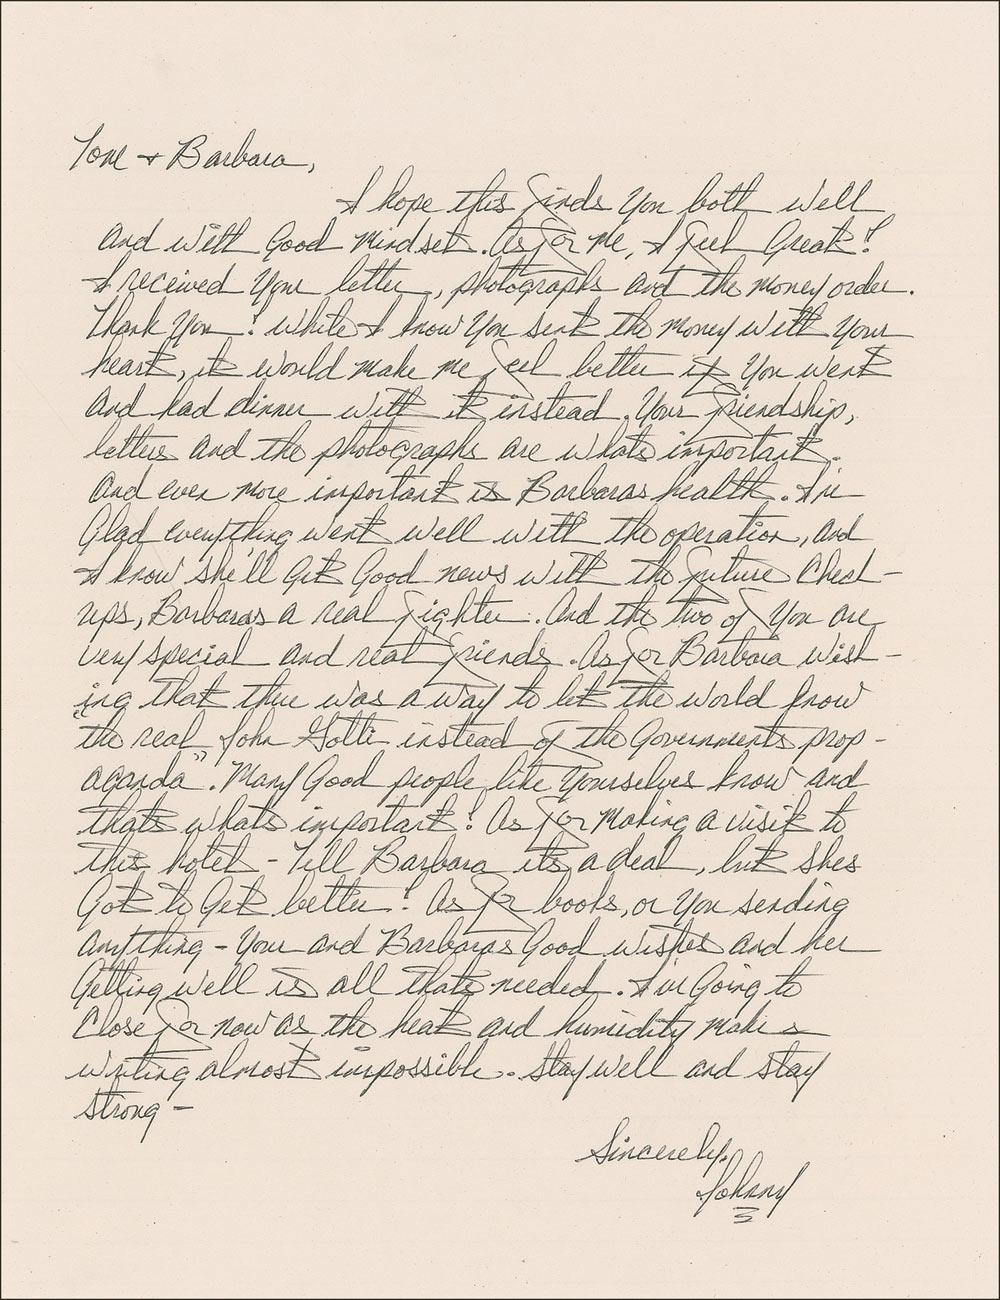 Tom + Barbara,
I hope this finds You both well
and with Good mindset. As for me, I feel Great!
I received Your letter, photographs and the money order.
Thank You! While I know You sent the money with Your
heart, it would make me feel better if You went
and had dinner with it instead. Your friendship,
letters and the photographs are whats important.
And even more important is Barbaras health. I'm
Glad everything went well with the operation, and
I know she'll Get Good news with the future Check-
ups, Barbaras a real fighter. And the two of You are
very special and real friends. As for Barbara wish-
ing that there was a way to let the world know
"the real John Gotti instead of the Governments prop-
aganda". Many Good people like Yourselves know and
thats whats important! As for making a visit to
this hotel - Tell Barbara its a deal, but shes
Got to Get better! As for books, or You sending
anything - Your and Barbaras Good wishes and her
Getting well is all thats needed. I'm Going to
Close for now as the heat and humidity makes
writing almost impossible. Stay well and stay
strong -
Sincerely,
Johnny